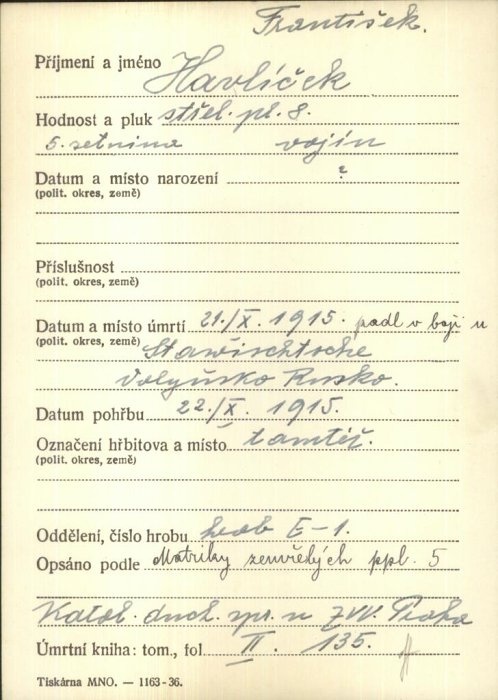 František.
Příjmení a jméno Havlíček
Hodnost a pluk střel. pl. 8.
5. setnina vojín
Datum a místo narození ?
(polit. okres, země)
Příslušnost
(polit. okres, země)
Datum a místo úmrtí 21./X. 1915. padl v boji u
(polit. okres, země)
Volyňsko Rusko.
Datum pohřbu 22./X. 1915.
Označení hřbitova a místo tamtéž.
(polit. okres, země)
Oddělení, číslo hrobu hrob E-1.
Opsáno podle Matriky zemřelých ppl. 5
Katol. duch. spr. u ZVV. Praha
Úmrtní kniha: tom., fol II. 135.
Tiskárna MNO. — 1163-36.